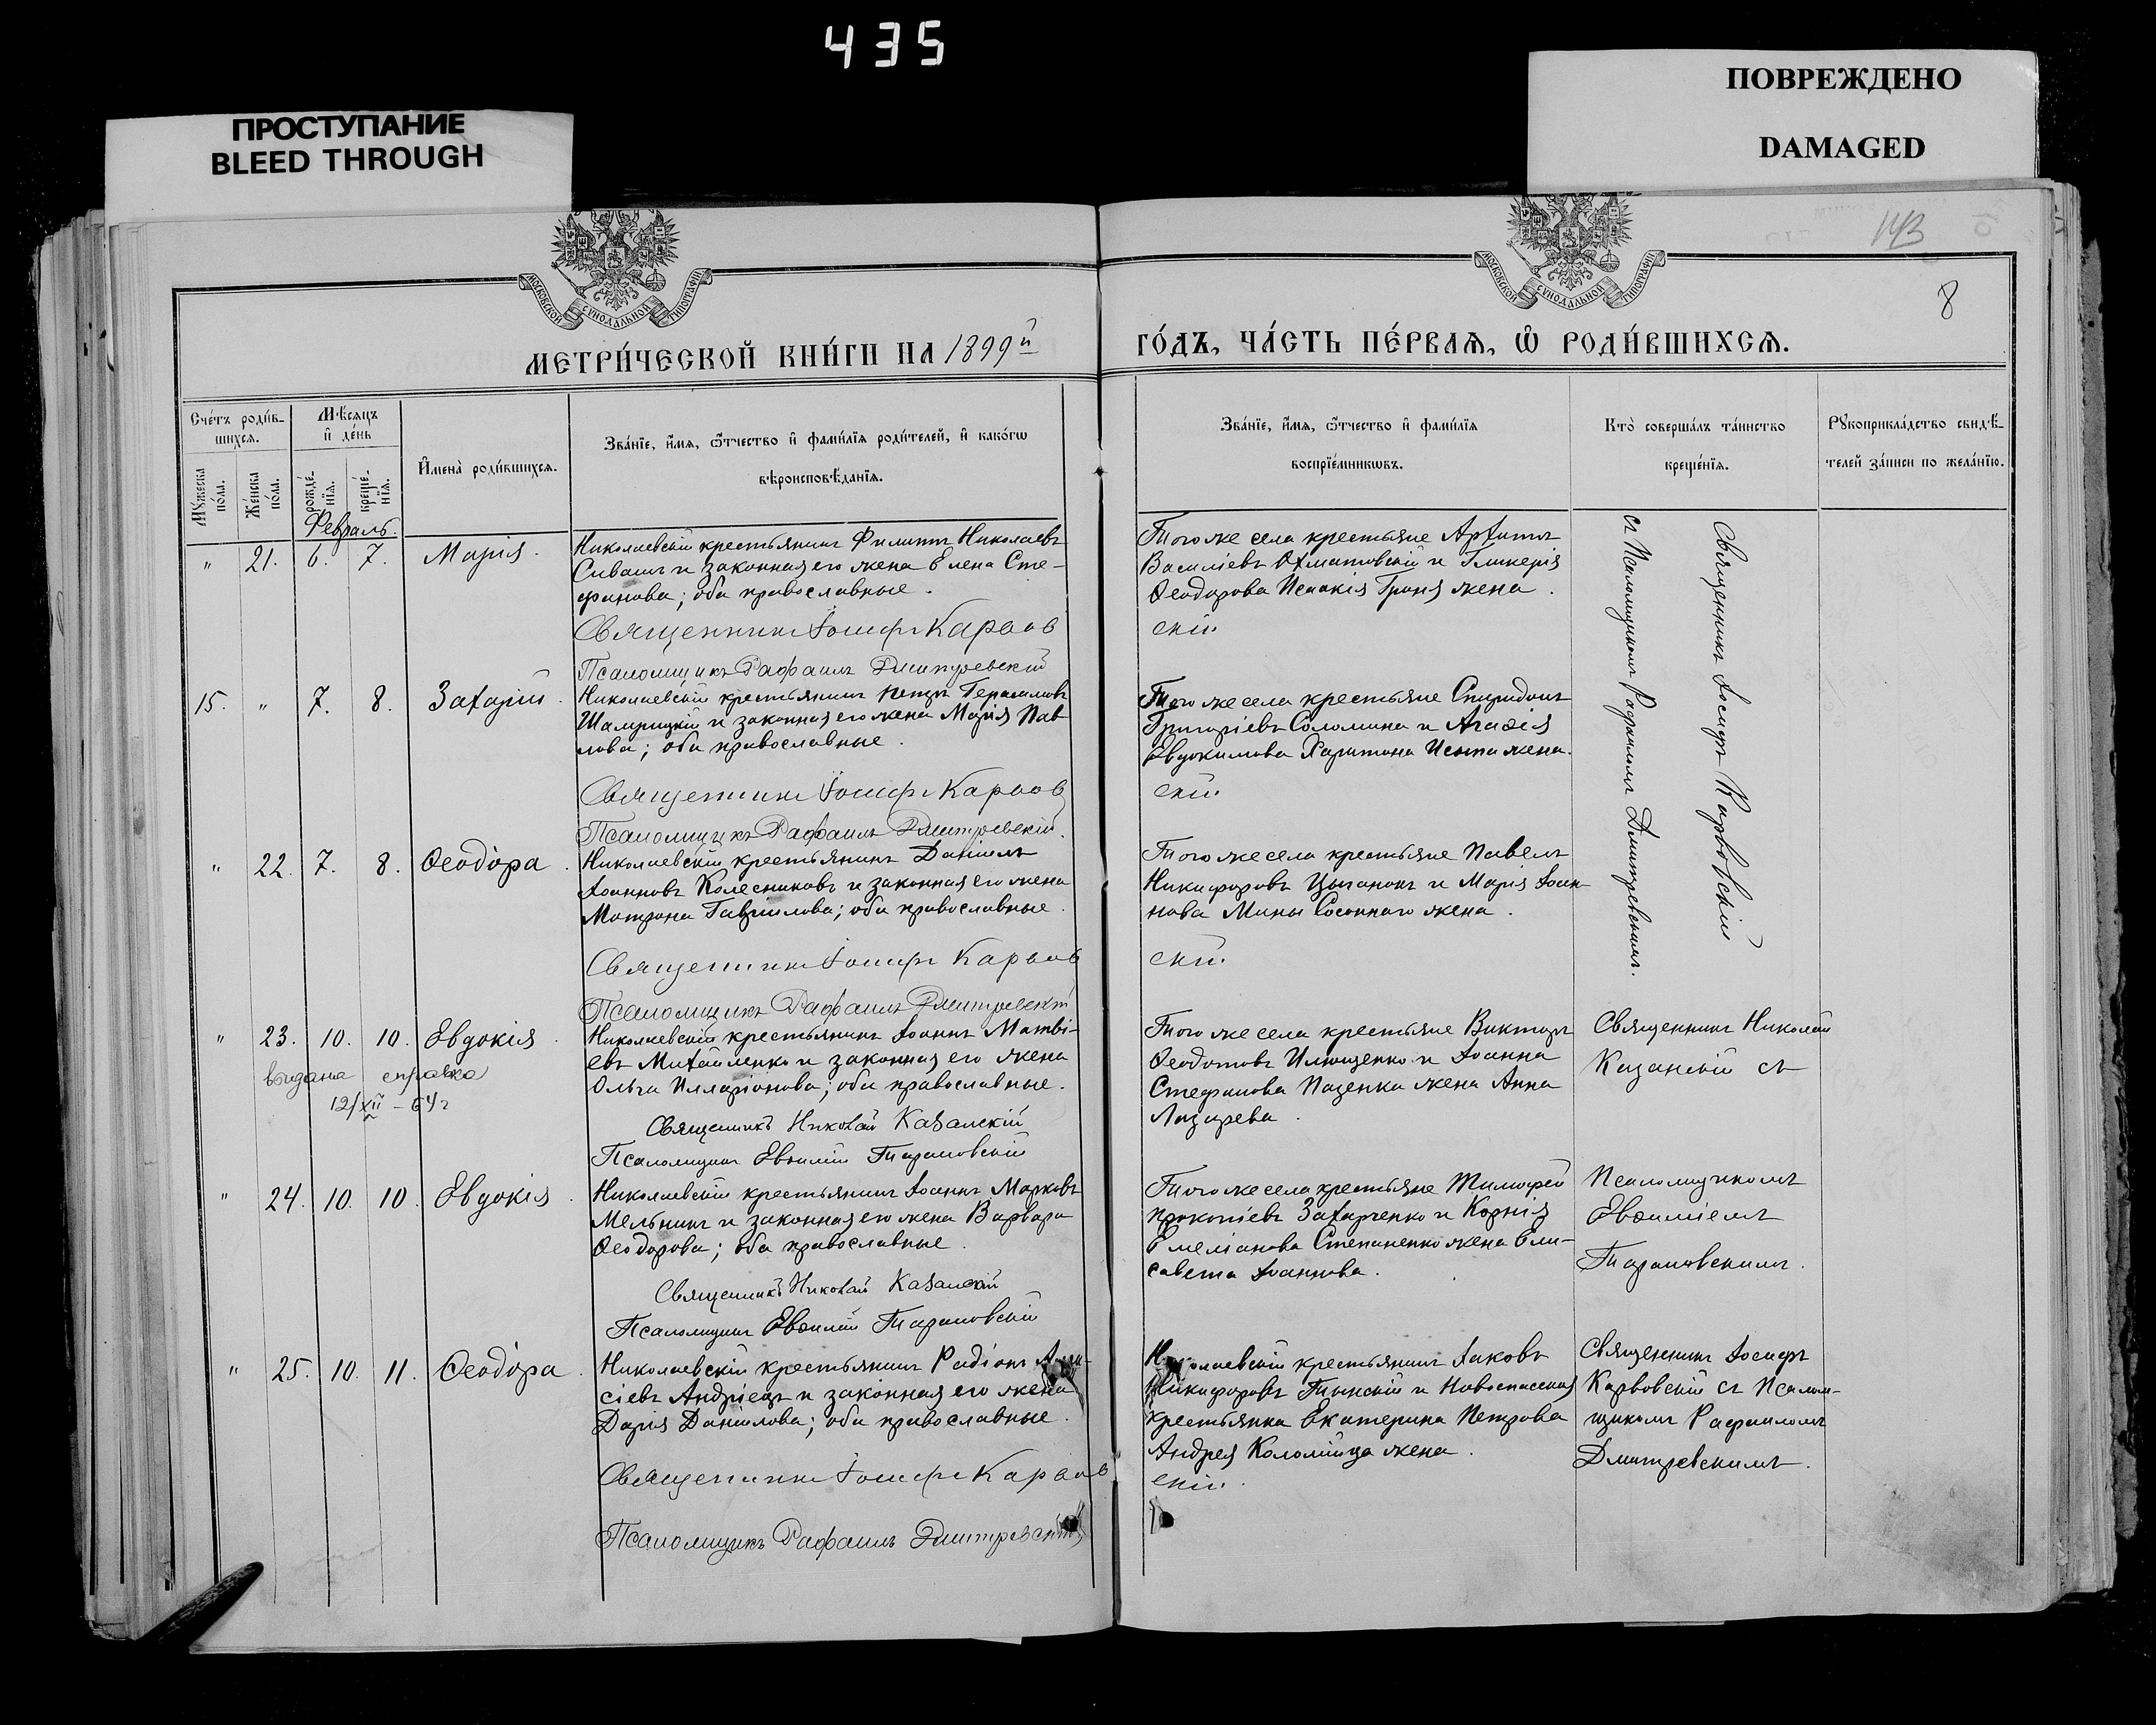 435
ПРОСТУПАНИЕ
BLEED THROUGH
ПОВРЕЖДЕНО
DAMAGED
МОСКОВСКОЙ СУНОДАЛЬНОЙ ТИПОГРАФИИ
МОСКОВСКОЙ СУНОДАЛЬНОЙ ТИПОГРАФИИ
8
МЕТРИ́ЧЕСКОЙ КНИ́ГИ НА 1899й
ГО́ДЪ, ЧА́СТЬ ПЕ́РВАѦ, Ѡ҆ РОДИ́ВШИХСѦ.
Сче́тъ роди́в-
шихсѧ.
Мꙋ́жеска по́ла.
Же́нска по́ла.
Мѣ́сѧцъ
и҆ де́нь
рожде́-нїѧ.
креще́-нїѧ.
И҆мена̀ роди́вшихсѧ.
Зва́нїе, и҆́мѧ, ѻ҆́тчество и҆ фами́лїѧ роди́телей, и҆ како́гѡ
вѣроисповѣ́данїѧ.
Зва́нїе, и҆́мѧ, ѻ҆́тчество и҆ фами́лїѧ
воспрїе́мникѡвъ.
Кто̀ соверша́лъ та́инство
креще́нїѧ.
Рꙋкоприкла́дство свидѣ́-
телей за́писи по жела́нїю.
Февраль.
" 21. 6. 7. Марія.
Николаевскій крестьянинъ Филиппъ Николаевъ
Сивашъ и законная его жена Елена Сте-
фанова; оба православные.
Священникъ Іосифъ Карвов
Псаломщикъ Рафаилъ Дмитревскій
Того же села крестьяне Архипъ
Василіевъ Охматовскій и Гликерія
Ѳеодорова Исаакія жена.
скій.
Священникъ Іосифъ Карвовскій
съ Псаломщикомъ Рафаиломъ Дмитревскимъ.
15. " 7. 8. Захарій.
Николаевскій крестьянинъ Петръ Герасимовъ
Шамрицкій и законная его жена Марія Пав-
лова; оба православные.
Священникъ Іосифъ Карвов
Псаломщикъ Рафаилъ Дмитревскій.
Того же села крестьяне Спиридонъ
Григоріевъ Соломина и Агаѳія
Евдокимова Харитона жена.
скій.
" 22. 7. 8. Ѳеодора.
Николаевскій крестьянинъ Даніилъ
Іоанновъ Колесниковъ и законная его жена
Матрона Гавріилова; оба православные.
Священникъ Іосифъ Карвов
Псаломщикъ Рафаилъ Дмитревскій
Того же села крестьяне Павелъ
Никифоровъ Цыганокъ и Марія Іоан-
нова Мины Сосоннаго жена.
скій.
" 23. 10. 10. Евдокія.
выдана справка
12/XII – 64 г
Николаевскій крестьянинъ Іоаннъ Матві-
евъ Михайленко и законная его жена
Ольга Илларіонова; оба православные.
Священникъ Николай Казанскій
Псаломщикъ Евѳимій Тарановскій
Того же села крестьяне Викторъ
Ѳеодотовъ Илющенко и Іоанна
Стефанова Паценка жена Анна
Лазарева.
Священникъ Николай
Казанскій съ
" 24. 10. 10. Евдокія.
Николаевскій крестьянинъ Іоаннъ Марковъ
Мельникъ и законная его жена Варвара
Ѳеодорова; оба православные.
Священникъ Николай Казанскій
Псаломщикъ Евѳимій Тарановскій
Того же села крестьяне Тимофей
Прокопіевъ Захарченко и Корнія
Емеліанова Степаненко жена Ели-
савета Іоаннова.
Псаломщикомъ
Евѳиміемъ
Тарановскимъ.
" 25. 10. 11. Ѳеодора.
Николаевскій крестьянинъ Радіонъ
сіевъ Андріецъ и законная его жена
Дарія Данилова; оба православные.
Священникъ Іосифъ Карвов
Псаломщикъ Рафаилъ Дмитревскій
Николаевскій крестьянинъ Іаковъ
Никифоровъ Тынскій и Новоспасская
крестьянка Екатерина Петрова
Андрея Коломійца жена.
скій.
Священникъ Іосифъ
Карвовскій съ Псалом-
щикомъ Рафаиломъ
Дмитревскимъ.